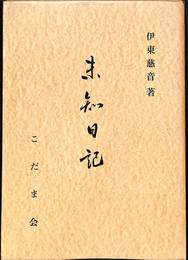 伊東慈音 著
未知日記
こだま会